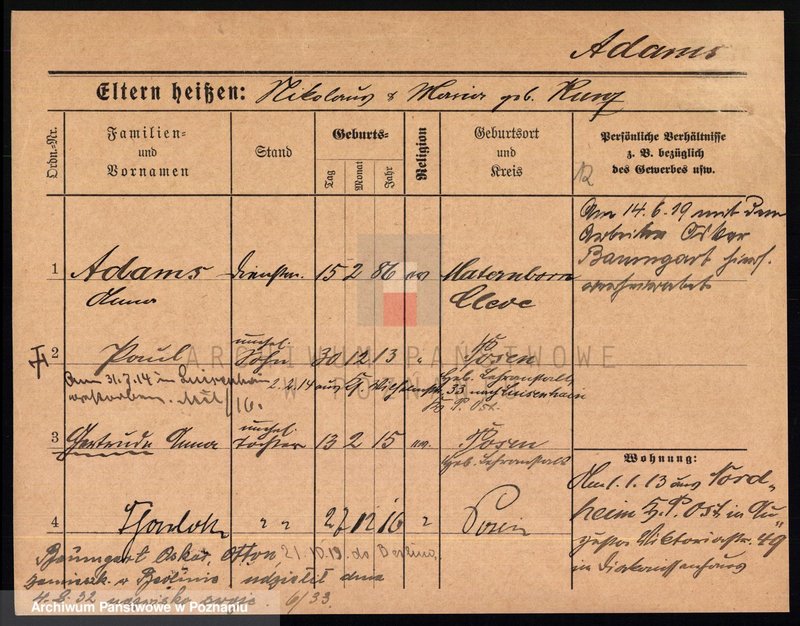 Adams
Eltern heißen: Nikolaus & Maria geb. Kunz
Ordn.-Nr.
Familien-
und
Vornamen
Stand
Geburts-
Tag
Monat
Jahr
Religion
Geburtsort
und
Kreis
Persönliche Verhältnisse
z. B. bezüglich
des Gewerbes usw.
12
Am 14.6.19 mit dem
Arbeiter Oskar
Baumgart hiers.
verheiratet
1 Adams Dienstm. 15 2 86 ev Materborn
Anna Cleve
2 Paul unehel. Sohn 30 12 13 " Posen
Geb. Lehranstalt
Am 31.7.14 in
verstorben. 2.2.14 aus G. Wilhelmstr. 33 nach Luisenhain
Kr. P. Ost.
3 Gertrude Anna unehel. Tochter 13 2 15 ev. Posen
Geb. Lehranstalt
4 " " 27 12 16 " Posen
Wohnung:
Am 1.1.13 aus Nord-
heim Kr. P. Ost. in
Viktoriastr. 49
in Diakonissenhaus
Baumgart Oskar Otto 21.10.19. do
w Berlinie udzielił dnia
4.8.32 nazwisko swoje. 6/33.
ARCHIWUM PAŃSTWOWE
W POZNANIU
Archiwum Państwowe w Poznaniu